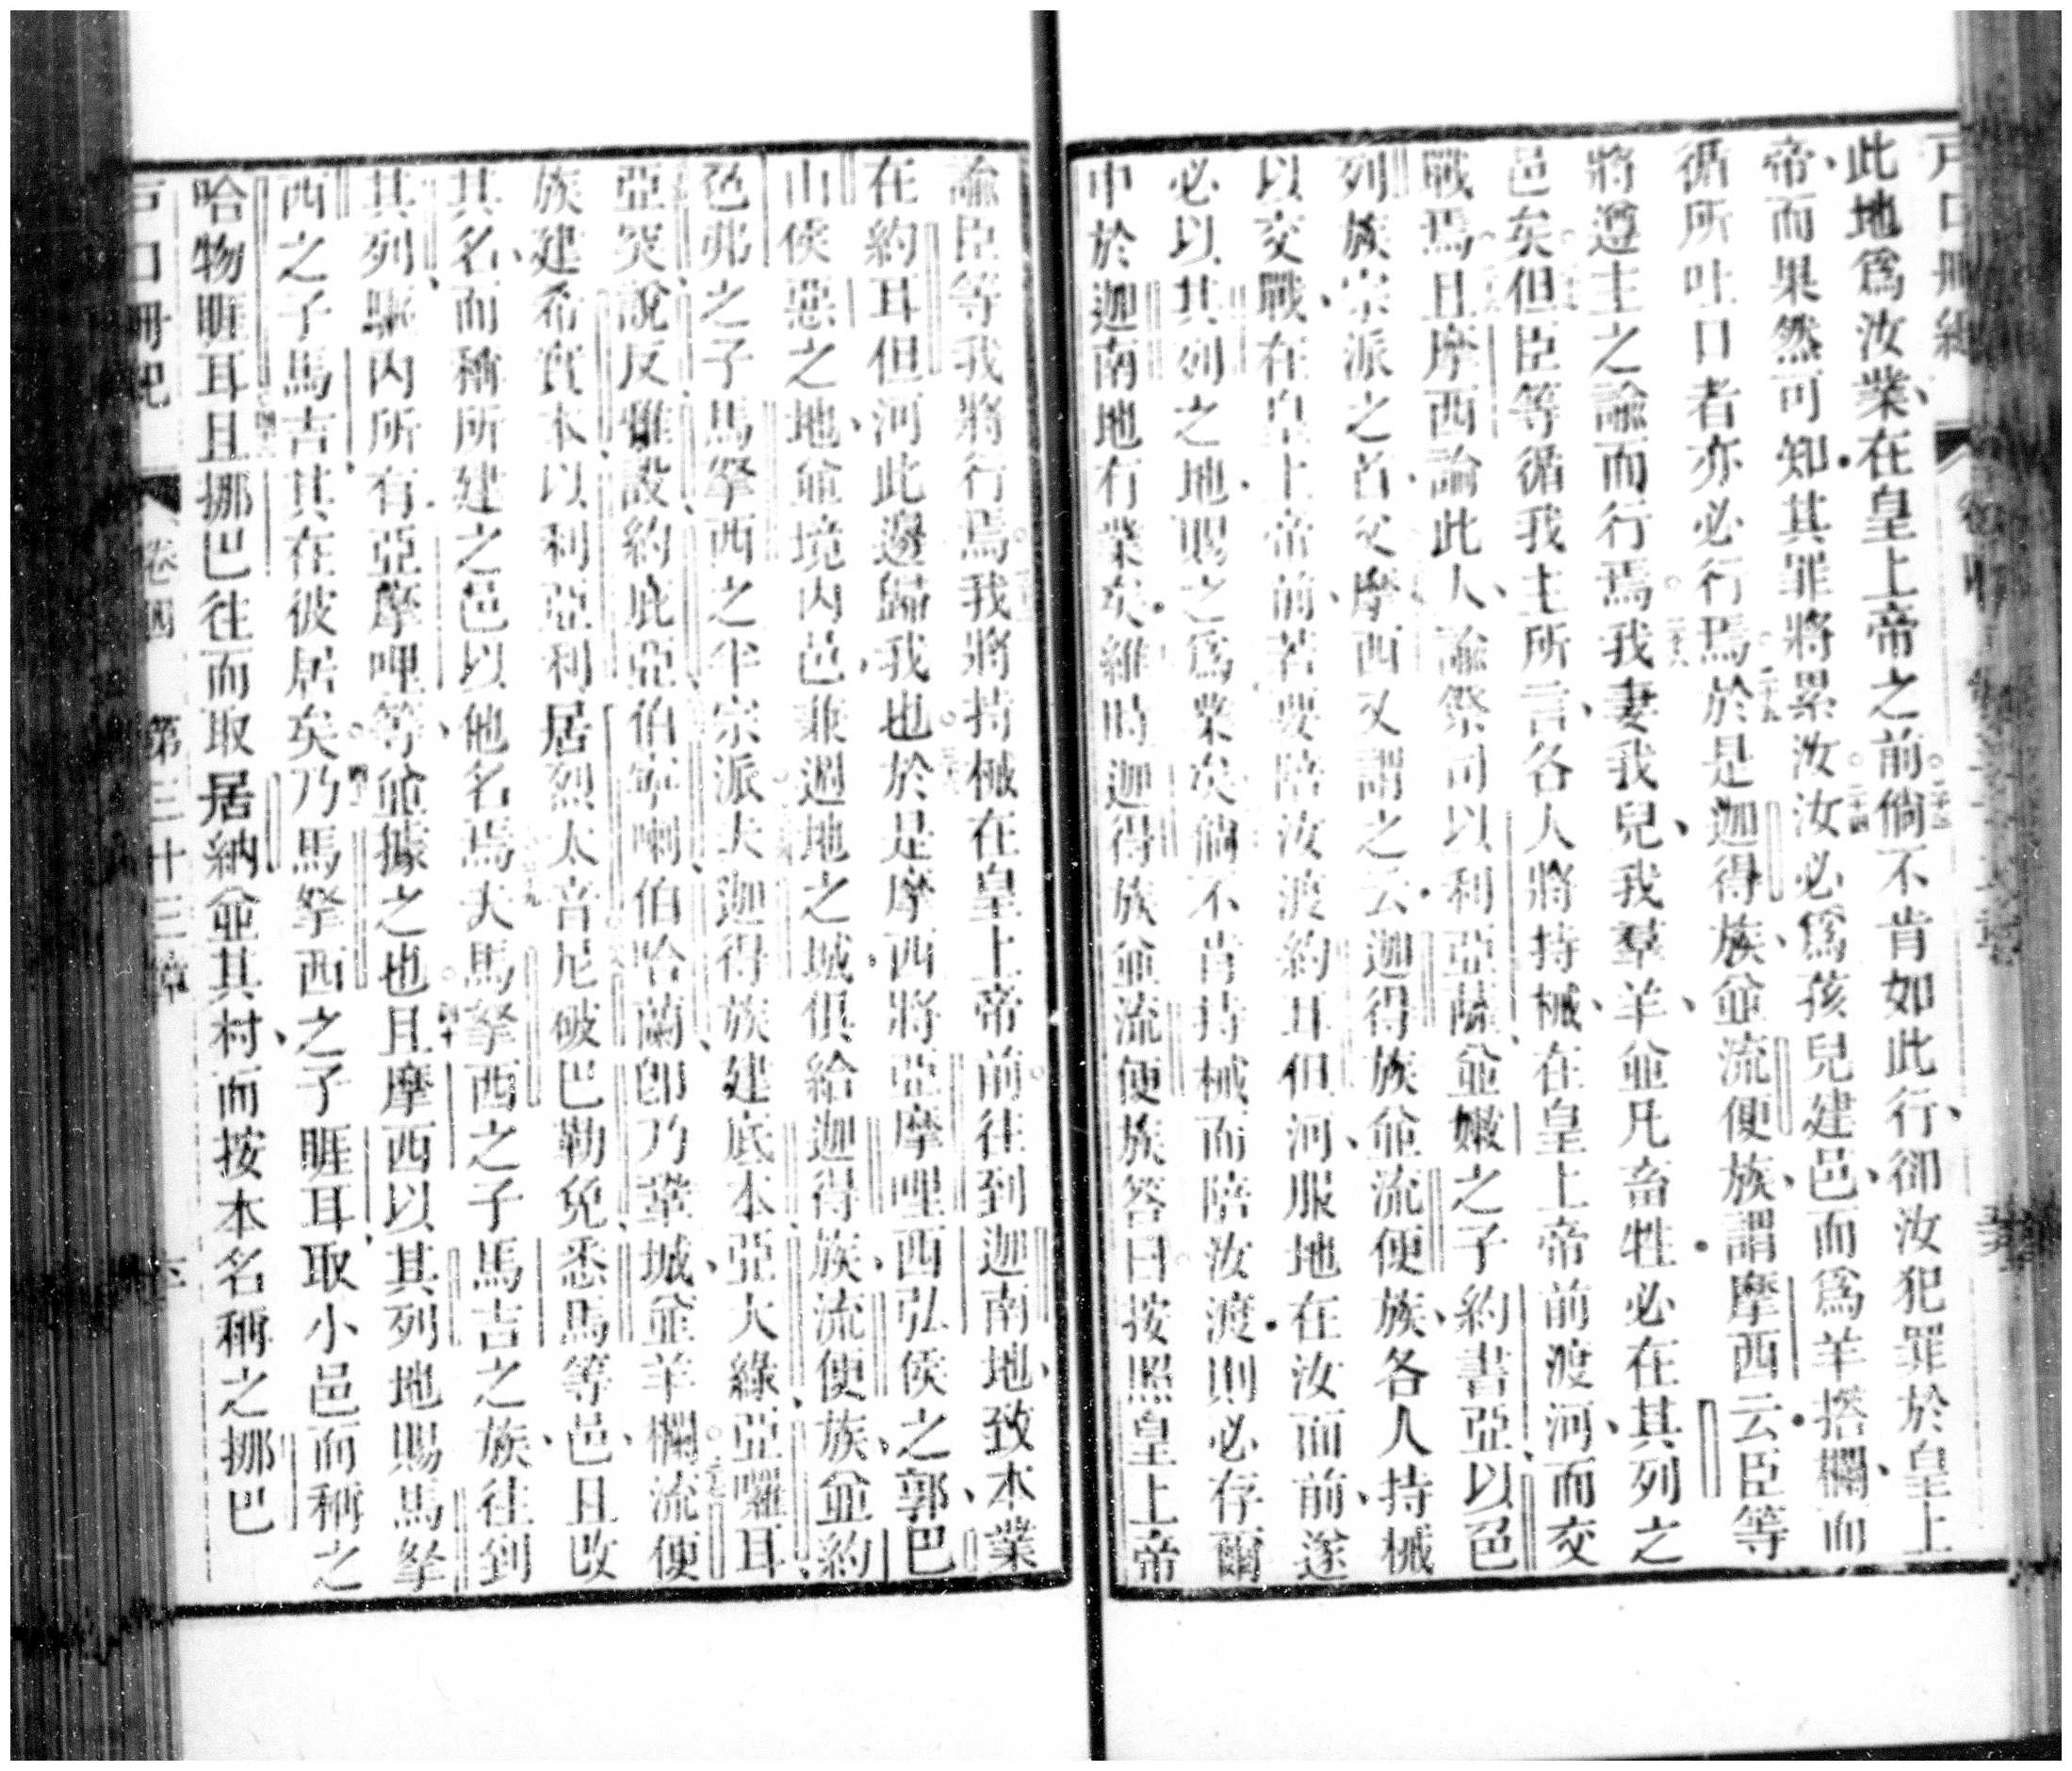 此地爲汝業、在皇上帝之前倘不肯如此行、卻汝犯罪於皇上
帝、而果然可知其罪將累汝汝必爲孩兒建邑、而爲羊搭欄、而
循所吐口者亦必行焉於是迦得族、並流便族、謂摩西云臣等
將遵主之諭而行焉我妻我兒、我羣羊、並凡畜牲必在其列之
邑矣但臣等循我主所言、各人將持械、在皇上帝前渡河、而交
戰焉且摩西論此人、諭祭司以利亞薩、並嫩之子約書亞、以色
列族宗派之首父摩西又謂之云迦得族並流便族、各人持械
以交戰、在皇上帝前、若要陪汝渡約耳但河、服地在汝面前、遂
必以其列之地賜之爲業矣倘不肯持械而陪汝渡則必存爾
中於迦南地有業矣維時迦得族並流便族答曰按照皇上帝
諭臣等我將行焉我將持械在皇上帝前往到迦南地、致本業
在約耳但河此邊歸我也於是摩西將亞摩哩西弘侯之郭、巴
山侯惡之地、並境內邑、兼週地之城俱給迦得族、流便族、並約
色弗之子馬拏西之半宗派夫迦得族建底本亞大綠、亞囉耳、
亞突說反、雅設、約庇亞、伯寧喇、伯哈蘭、卽乃鞏城、並羊欄流便
族建希實本以利亞利居烈太音尼破巴勒免悉馬等邑、且改
其名、而稱所建之邑以他名焉夫馬拏西之子馬吉之族、往到
其列、驅內所有亞摩哩等、並據之也且摩西以其列地賜馬拏
西之子馬吉、其在彼居矣乃馬拏西之子睚耳、取小邑而稱之
哈物睚耳且挪巴往而取居納並其村、而按本名稱之挪巴
戶口冊紀 卷四 第三十三章